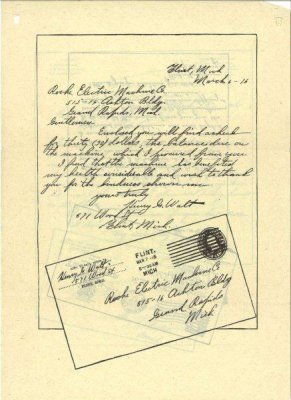 Flint, Mich
March 6-16
Rooke Electric Machine Co
515-16 Ashton Bldg.
Grand Rapids, Mich.
Gentlemen:
Enclosed you will find a check
for thirty (30) dollars, the balance due on
the machine, which I procured from you.
I find that the machine has benefited
my health considerable and want to thank
you for the kindness shown me
yours truly
Henry G. Walt
571 Wood St
Flint, Mich.
Henry G. Walt.
571 Wood St
FLINT, MICH.
FLINT,
MICH
Rooke Electric Machine Co
515-16 Ashton Bldg
Grand Rapids
Mich